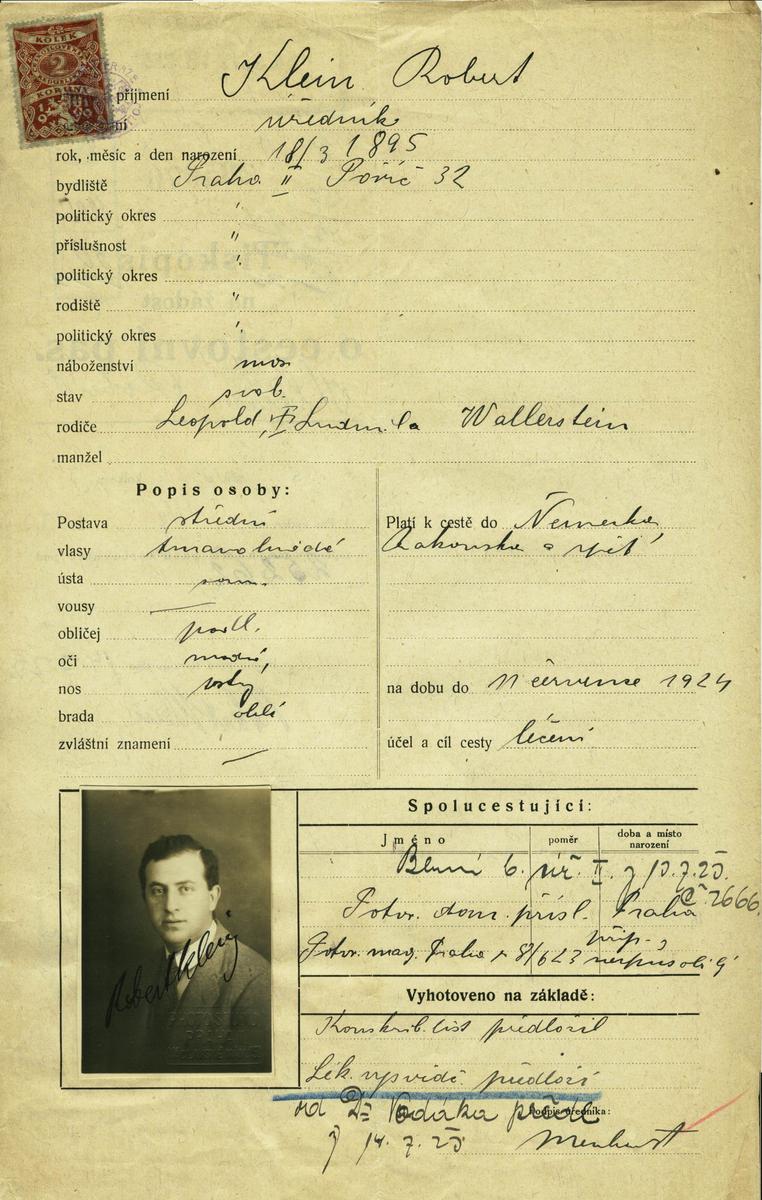 KOLEK
2
KORUNA
příjmení Klein Robert
úředník
rok, měsíc a den narození 18/3 1895
bydliště Praha II Poříč 32
politický okres "
příslušnost "
politický okres "
rodiště "
politický okres "
náboženství mos.
stav svob.
rodiče Leopold, Ludmila Wallerstein
manžel
Popis osoby:
Postava střední
vlasy tmavohnědé
ústa soum.
vousy —
obličej podl.
oči modré,
nos
brada oblá
zvláštní znamení —
Platí k cestě do Německa,
Rakouska a zpět
na dobu do 11 července 1924
účel a cíl cesty léčení
Spolucestující:
Jméno poměr doba a místo narození
Č 2666.
Potvr. dom. přísl. Praha
Potvr. mag. Praha
Vyhotoveno na základě:
Konskrib. list předložil
Lék. vysvědč předloží
od Dr Vodáka
Podpis úředníka:
Robert Klein